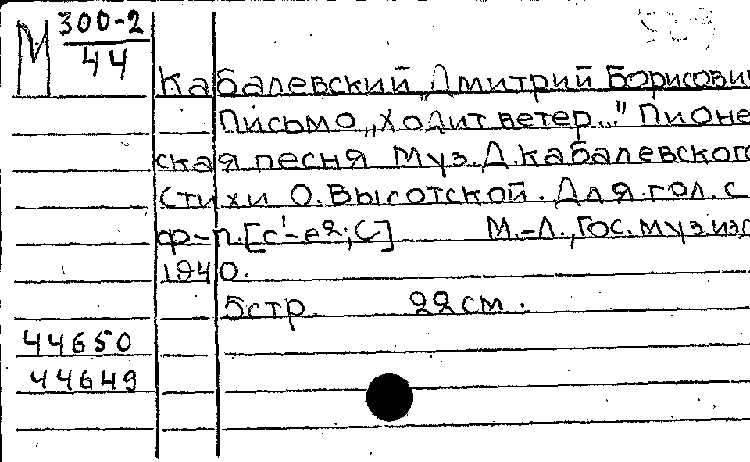 М 300-2
44
Кабалевский, Дмитрий Борисович
Письмо „Ходит ветер..." Пионе
ская песня Муз. Д. Кабалевског
Стихи О. Высотской. Для гол. с
ф-п. [c'-e2; С] М.-Л., Гос. муз. из
1940.
5 стр. 22 см.
44650
44649